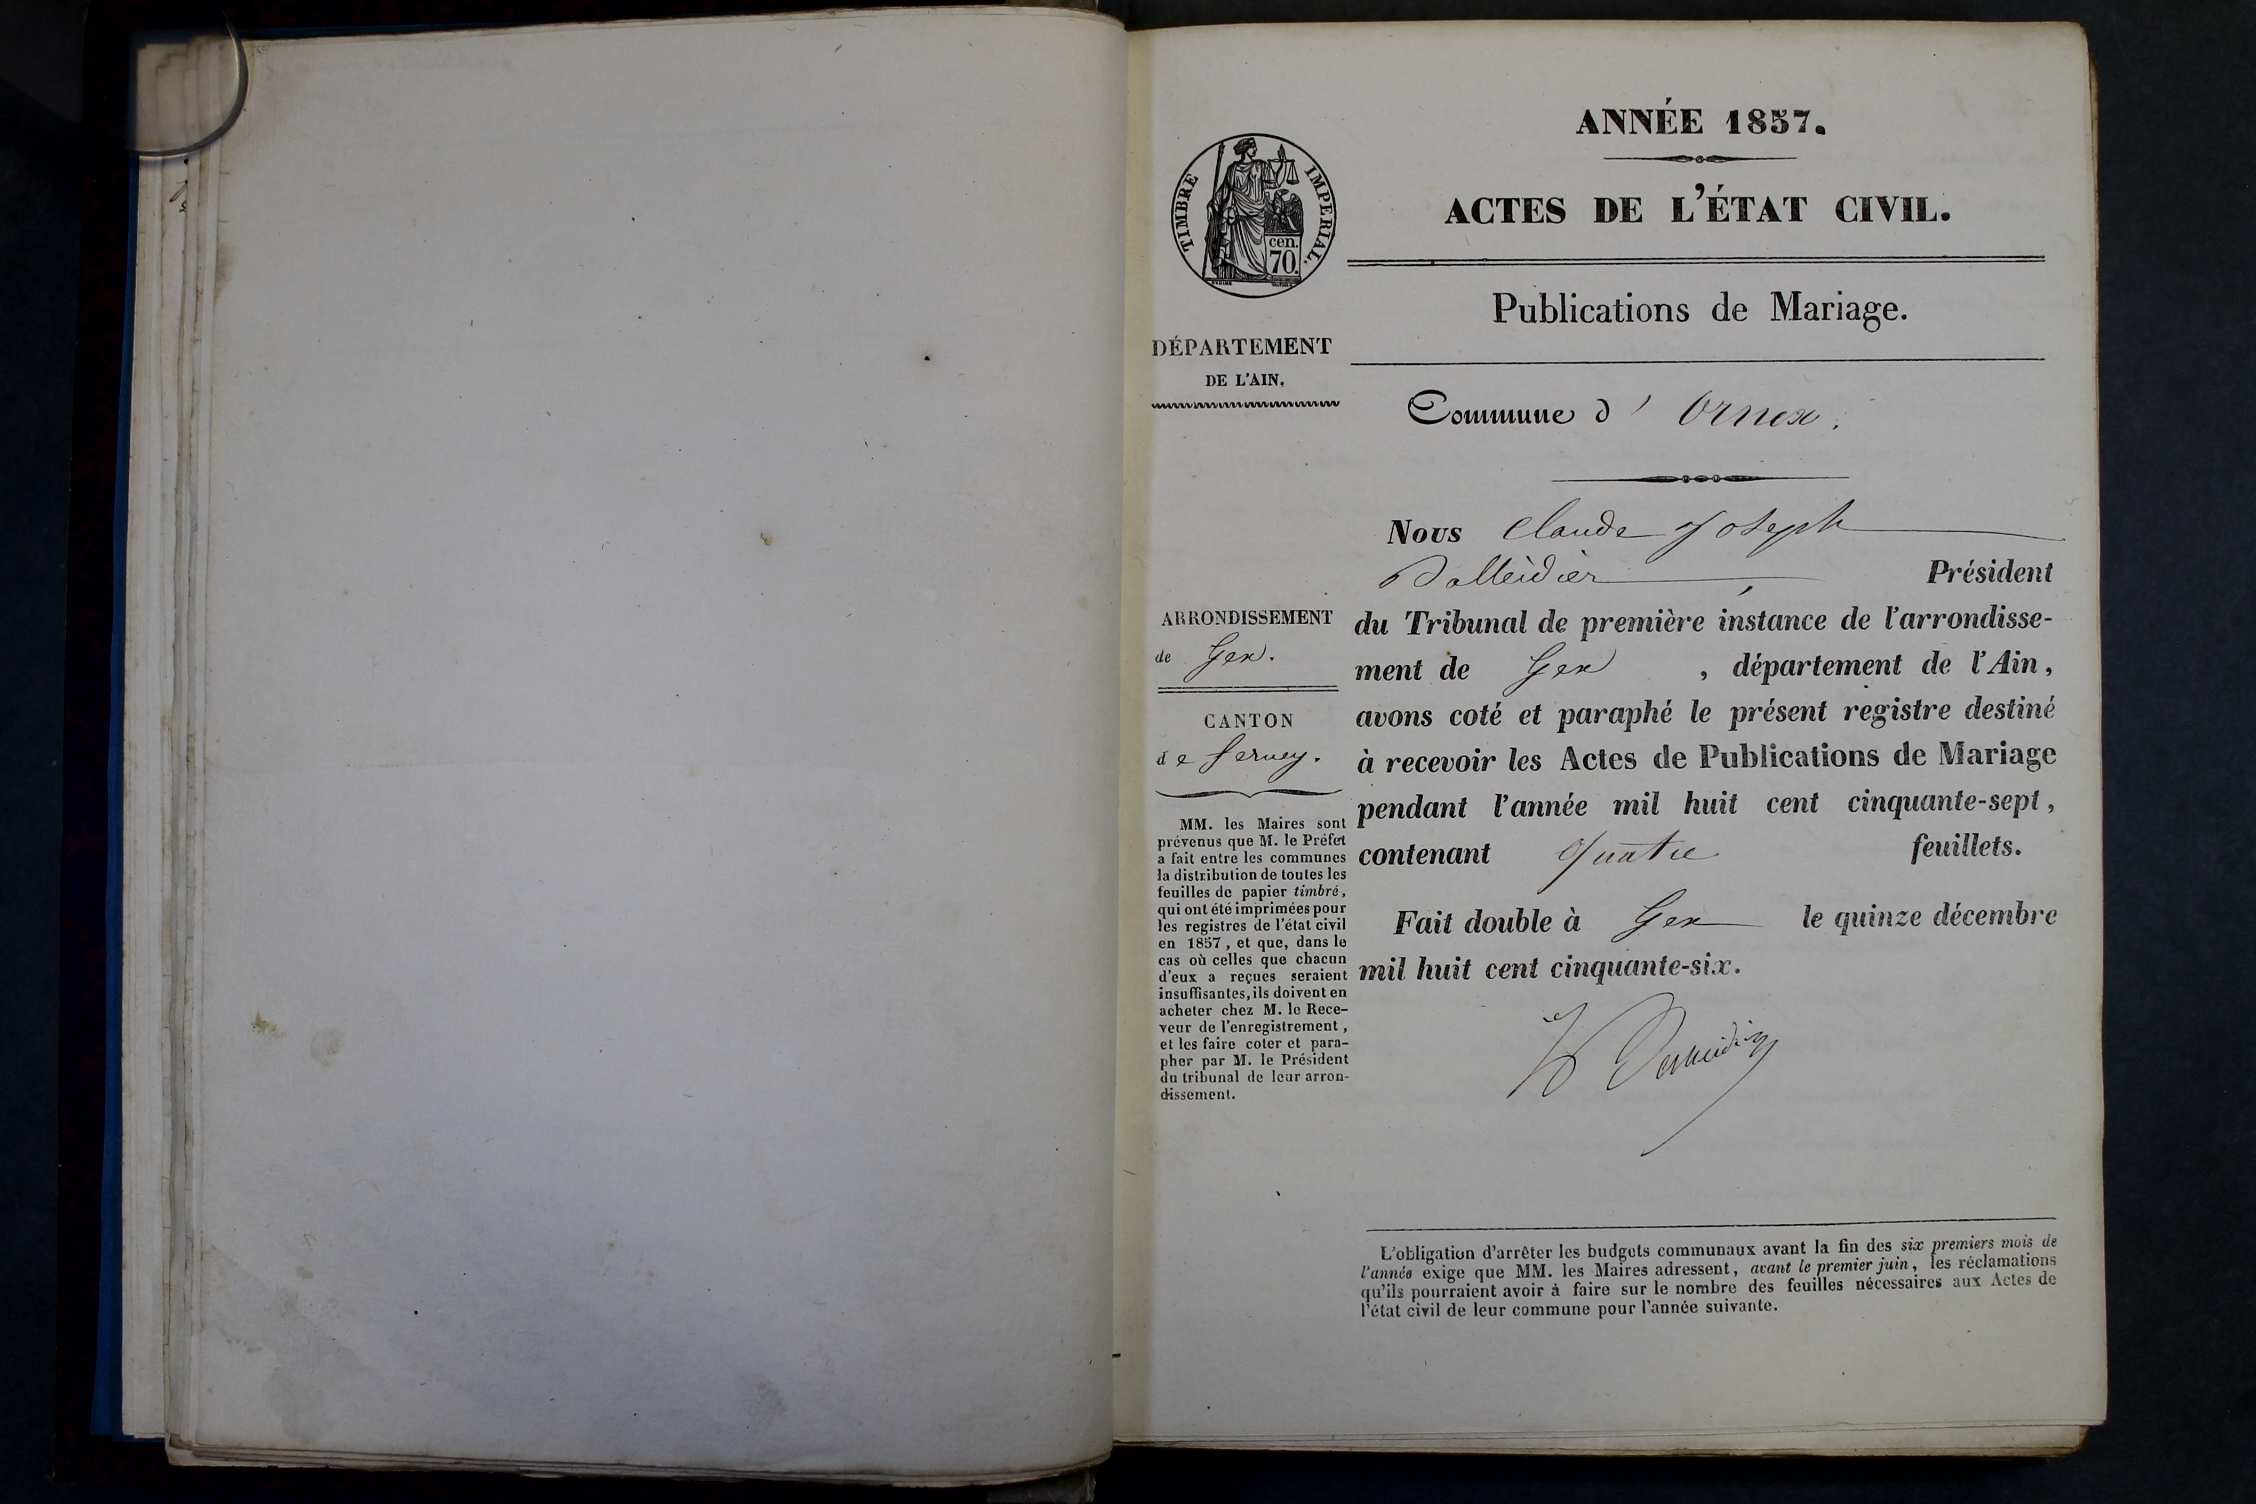 ANNÉE 1857.
ACTES DE L'ÉTAT CIVIL.
TIMBRE IMPERIAL.
cen.
70.
Publications de Mariage.
DÉPARTEMENT
DE L'AIN.
Commune d' Ornex.
Nous Claude Joseph
Président
du Tribunal de première instance de l'arrondisse-
ment de Gex, département de l'Ain,
avons coté et paraphé le présent registre destiné
à recevoir les Actes de Publications de Mariage
pendant l'année mil huit cent cinquante-sept,
contenant quatre feuillets.
Fait double à Gex le quinze décembre
mil huit cent cinquante-six.
ARRONDISSEMENT
de Gex.
CANTON
de Ferney.
MM. les Maires sont
prévenus que M. le Préfet
a fait entre les communes
la distribution de toutes les
feuilles de papier timbré,
qui ont été imprimées pour
les registres de l'état civil
en 1857, et que, dans le
cas où celles que chacun
d'eux a reçues seraient
insuffisantes, ils doivent en
acheter chez M. le Rece-
veur de l'enregistrement,
et les faire coter et para-
pher par M. le Président
du tribunal de leur arron-
dissement.
L'obligation d'arrêter les budgets communaux avant la fin des six premiers mois de
l'année exige que MM. les Maires adressent, avant le premier juin, les réclamations
qu'ils pourraient avoir à faire sur le nombre des feuilles nécessaires aux Actes de
l'état civil de leur commune pour l'année suivante.